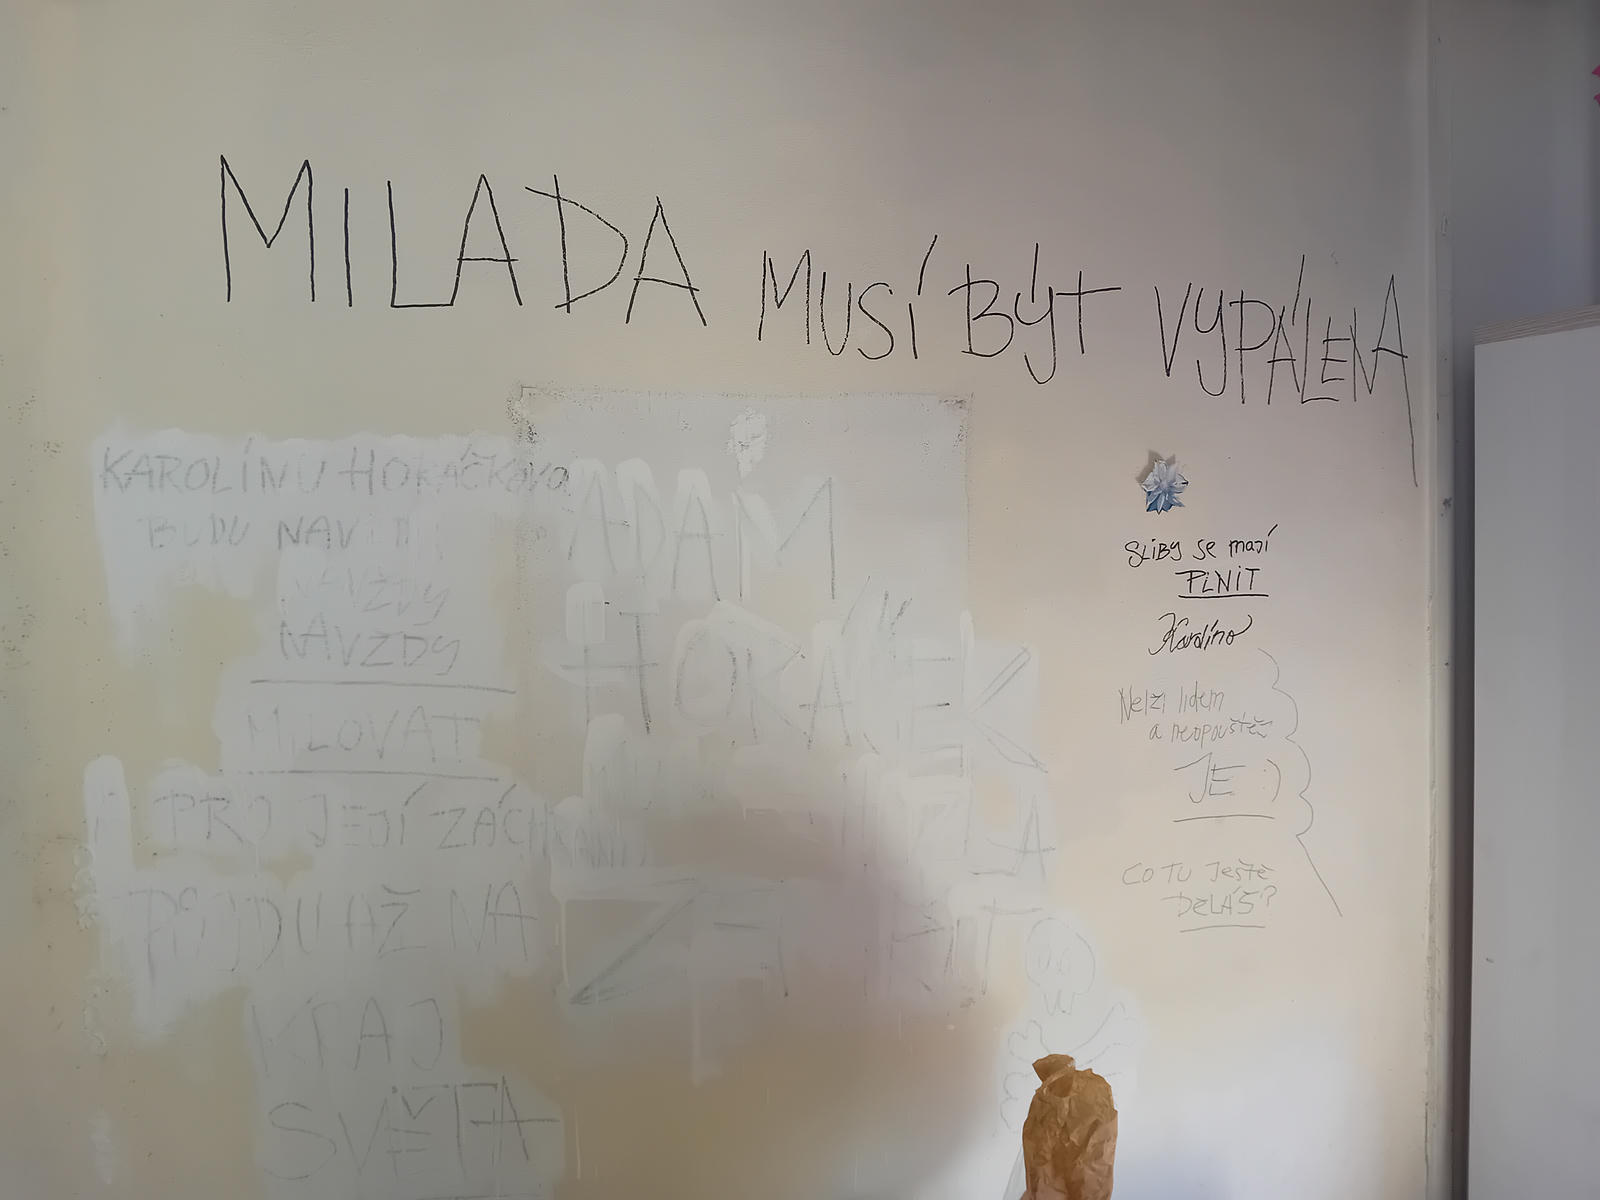 MILADA MUSÍ BÝT VYPÁLENA
KAROLÍNU HORÁČKOVO
BUDU
NAVŽDY
NAVŽDY
MILOVAT
A PRO JEJÍ ZÁCHRANU
PŮJDU AŽ NA
KRAJ
SVĚTA
ADAM
HORÁČEK
SLIBY SE MAJÍ
PLNIT
Karolíno
Nelži lidem
a neopouštěj
JE :)
CO TU JEŠTĚ
DĚLÁŠ?